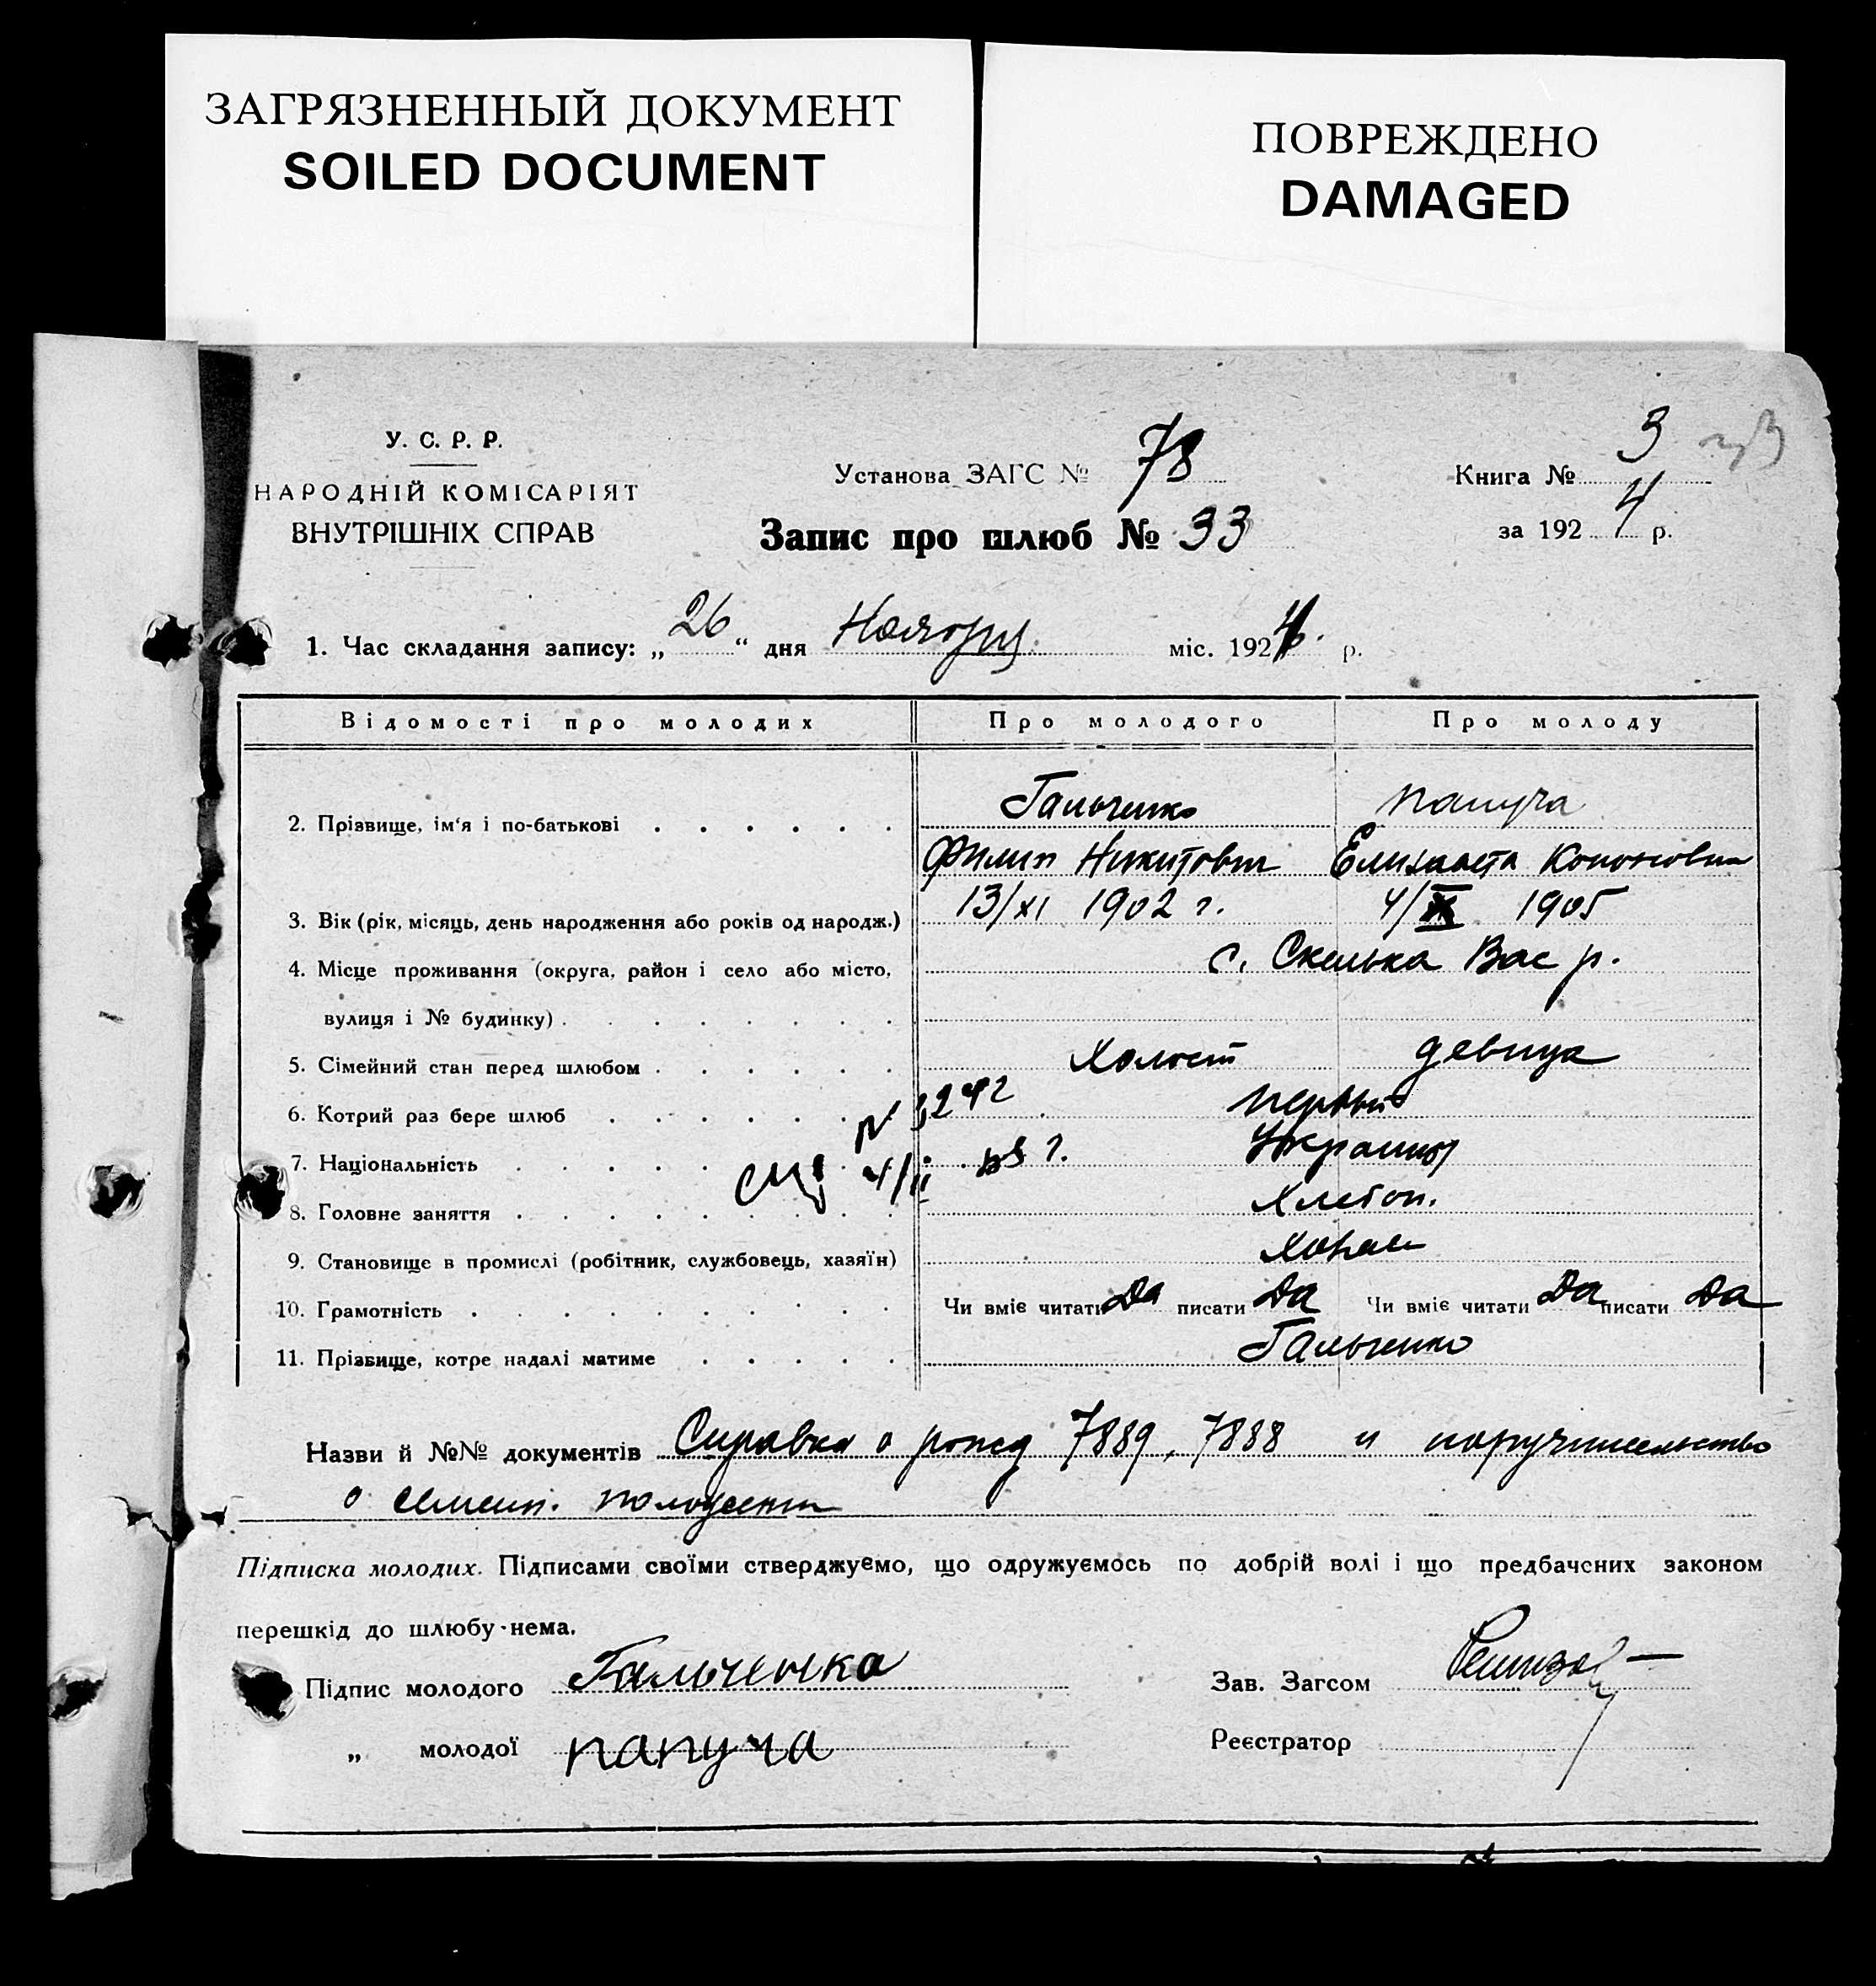 ЗАГРЯЗНЕННЫЙ ДОКУМЕНТ
SOILED DOCUMENT
ПОВРЕЖДЕНО
DAMAGED
У. С. Р. Р.
НАРОДНІЙ КОМІСАРІЯТ
ВНУТРІШНІХ СПРАВ
Установа ЗАГС № 78
Запис про шлюб № 33
Книга № 3
за 1924 р.
1. Час складання запису: „26“ дня Ноября міс. 1924 р.
Відомості про молодих Про молодого Про молоду
2. Прізвище, ім'я і по-батькові Гальченко Папуча
Филип Никитович Елизавета Кононовна
3. Вік (рік, місяць, день народження або років од народж.) 13/XI 1902 г. 4/IX 1905
4. Місце проживання (округа, район і село або місто, с. Скелька Вас р.
вулиця і № будинку)
5. Сімейний стан перед шлюбом Холост девица
6. Котрий раз бере шлюб первый
7. Національність Украинцы
8. Головне заняття Хлебоп.
9. Становище в промислі (робітник, службовець, хазяїн) Хозяе
10. Грамотність Чи вміє читати Да писати Да Чи вміє читати Да писати Да
11. Прізвище, котре надалі матиме Гальченко
Назви й №№ документів Справка о рожд 7889, 7888 и поручительство
о семейн. положении
Підписка молодих. Підписами своїми стверджуємо, що одружуємось по добрій волі і що предбачених законом
перешкід до шлюбу нема.
Підпис молодого Гальченко
Зав. Загсом
„ молодої папуча
Реєстратор